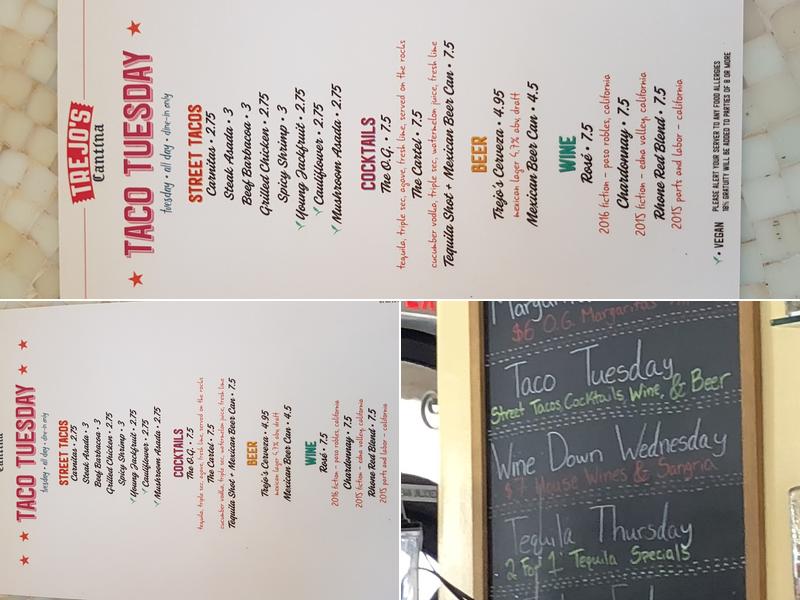 TREJO'S
Cantina
TACO TUESDAY
tuesday • all day • dine-in only
STREET TACOS
Carnitas • 2.75
Steak Asada • 3
Beef Barbacoa • 3
Grilled Chicken • 2.75
Spicy Shrimp • 3
Young Jackfruit • 2.75
Cauliflower • 2.75
Mushroom Asada • 2.75
COCKTAILS
The O.G. • 7.5
tequila, triple sec, agave, fresh lime, served on the rocks
The Cartel • 7.5
cucumber vodka, triple sec, watermelon juice, fresh lime
Tequila Shot + Mexican Beer Can • 7.5
BEER
Trejo's Cerveza • 4.95
mexican lager 4.7% abv, draft
Mexican Beer Can • 4.5
WINE
Rosé • 7.5
2016 fiction – paso robles, california
Chardonnay • 7.5
2015 fiction – edna valley, california
Rhone Red Blend • 7.5
2015 parts and labor – california
• VEGAN
PLEASE ALERT YOUR SERVER TO ANY FOOD ALLERGIES
18% GRATUITY WILL BE ADDED TO PARTIES OF 8 OR MORE
Cantina
TACO TUESDAY
tuesday • all day • dine-in only
STREET TACOS
Carnitas • 2.75
Steak Asada • 3
Beef Barbacoa • 3
Grilled Chicken • 2.75
Spicy Shrimp • 3
Young Jackfruit • 2.75
Cauliflower • 2.75
Mushroom Asada • 2.75
COCKTAILS
The O.G. • 7.5
tequila, triple sec, agave, fresh lime, served on the rocks
The Cartel • 7.5
cucumber vodka, triple sec, watermelon juice, fresh lime
Tequila Shot + Mexican Beer Can • 7.5
BEER
Trejo's Cerveza • 4.95
mexican lager 4.7% abv, draft
Mexican Beer Can • 4.5
WINE
Rosé • 7.5
2016 fiction – paso robles, california
Chardonnay • 7.5
2015 fiction – edna valley, california
Rhone Red Blend • 7.5
2015 parts and labor – california
$6 O.G. Margaritas
Taco Tuesday
Street Tacos, Cocktails, Wine, & Beer
Wine Down Wednesday
$7 House Wines & Sangria
Tequila Thursday
2 For 1 Tequila Specials